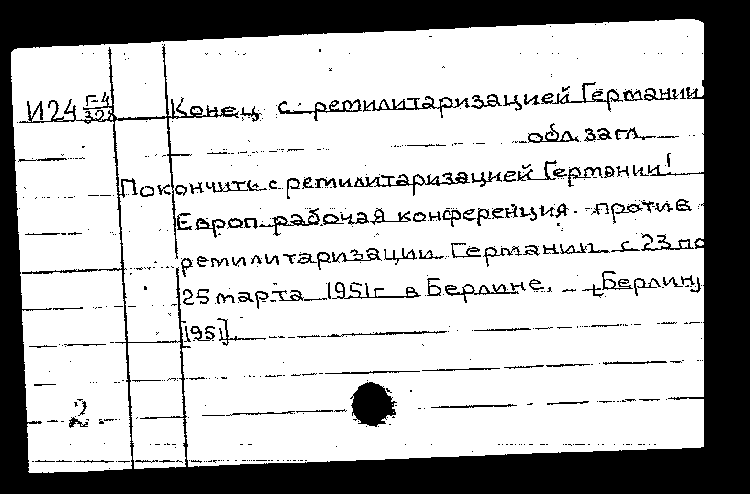 И24 Г-4/328 Конец с ремилитаризацией Германии!
обл. загл.
Покончить с ремилитаризацией Германии!
Европ. рабочая конференция против
ремилитаризации Германии с 23 по
25 марта 1951г в Берлине. [Берлин,
1951].
2.